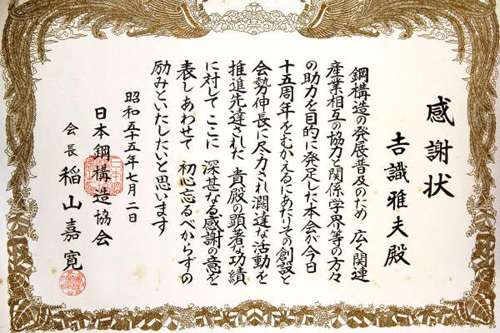 感謝状
吉識雅夫殿
鋼構造の発展普及のため 広く関連
産業相互の協力と関係学界等の方々
の助力を目的に発足した本会が今日
十五周年をむかえるにあたりその創設と
会勢伸長に尽力され濶達な活動を
推進先達された 貴殿の顕著な功績
に対して ここに 深甚なる感謝の意を
表しあわせて 初心忘るべからずの
励みといたしたいと思います
昭和五十五年七月二日
日本鋼構造協会
会長 稲山嘉寛